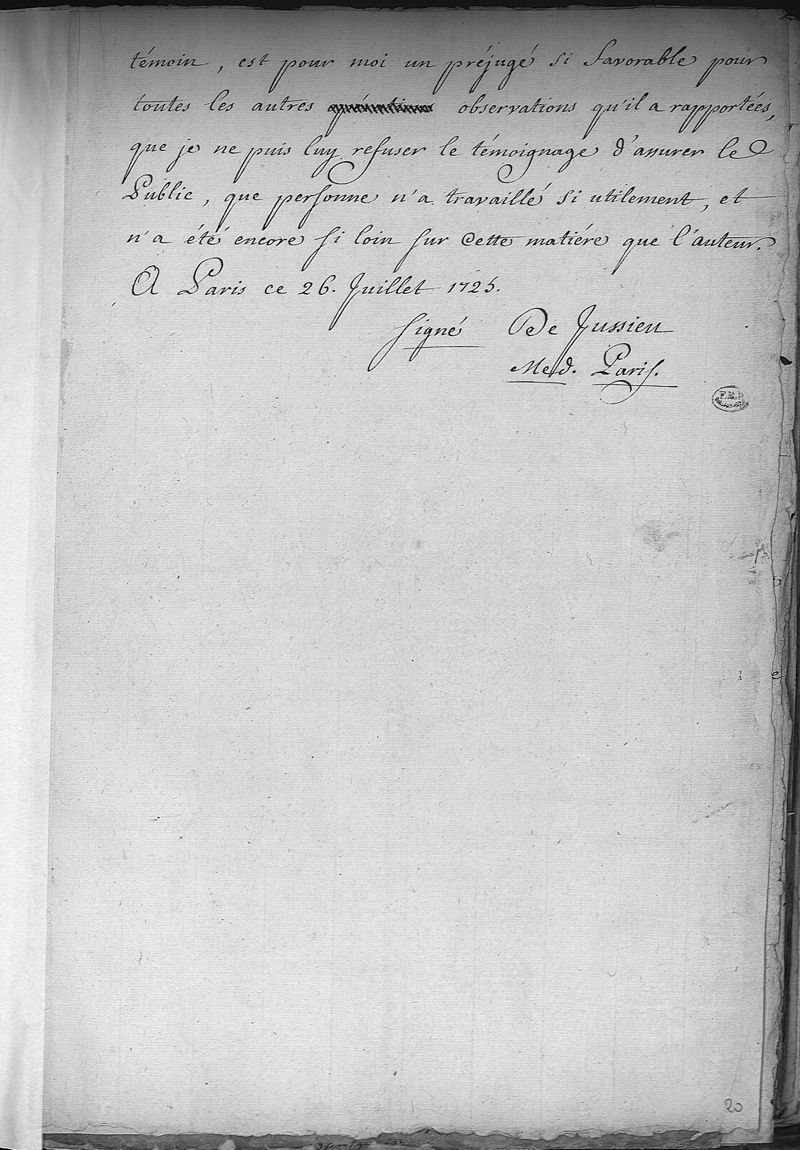 témoin, est pour moi un préjugé si favorable pour
toutes les autres observations qu'il a rapportées,
que je ne puis luy refuser le témoignage d'assurer le
Public, que personne n'a travaillé si utilement, et
n'a été encore si loin sur cette matiére que l'auteur.
A Paris ce 26. Juillet 1725.
signé De Jussieu
Med. Paris.
20